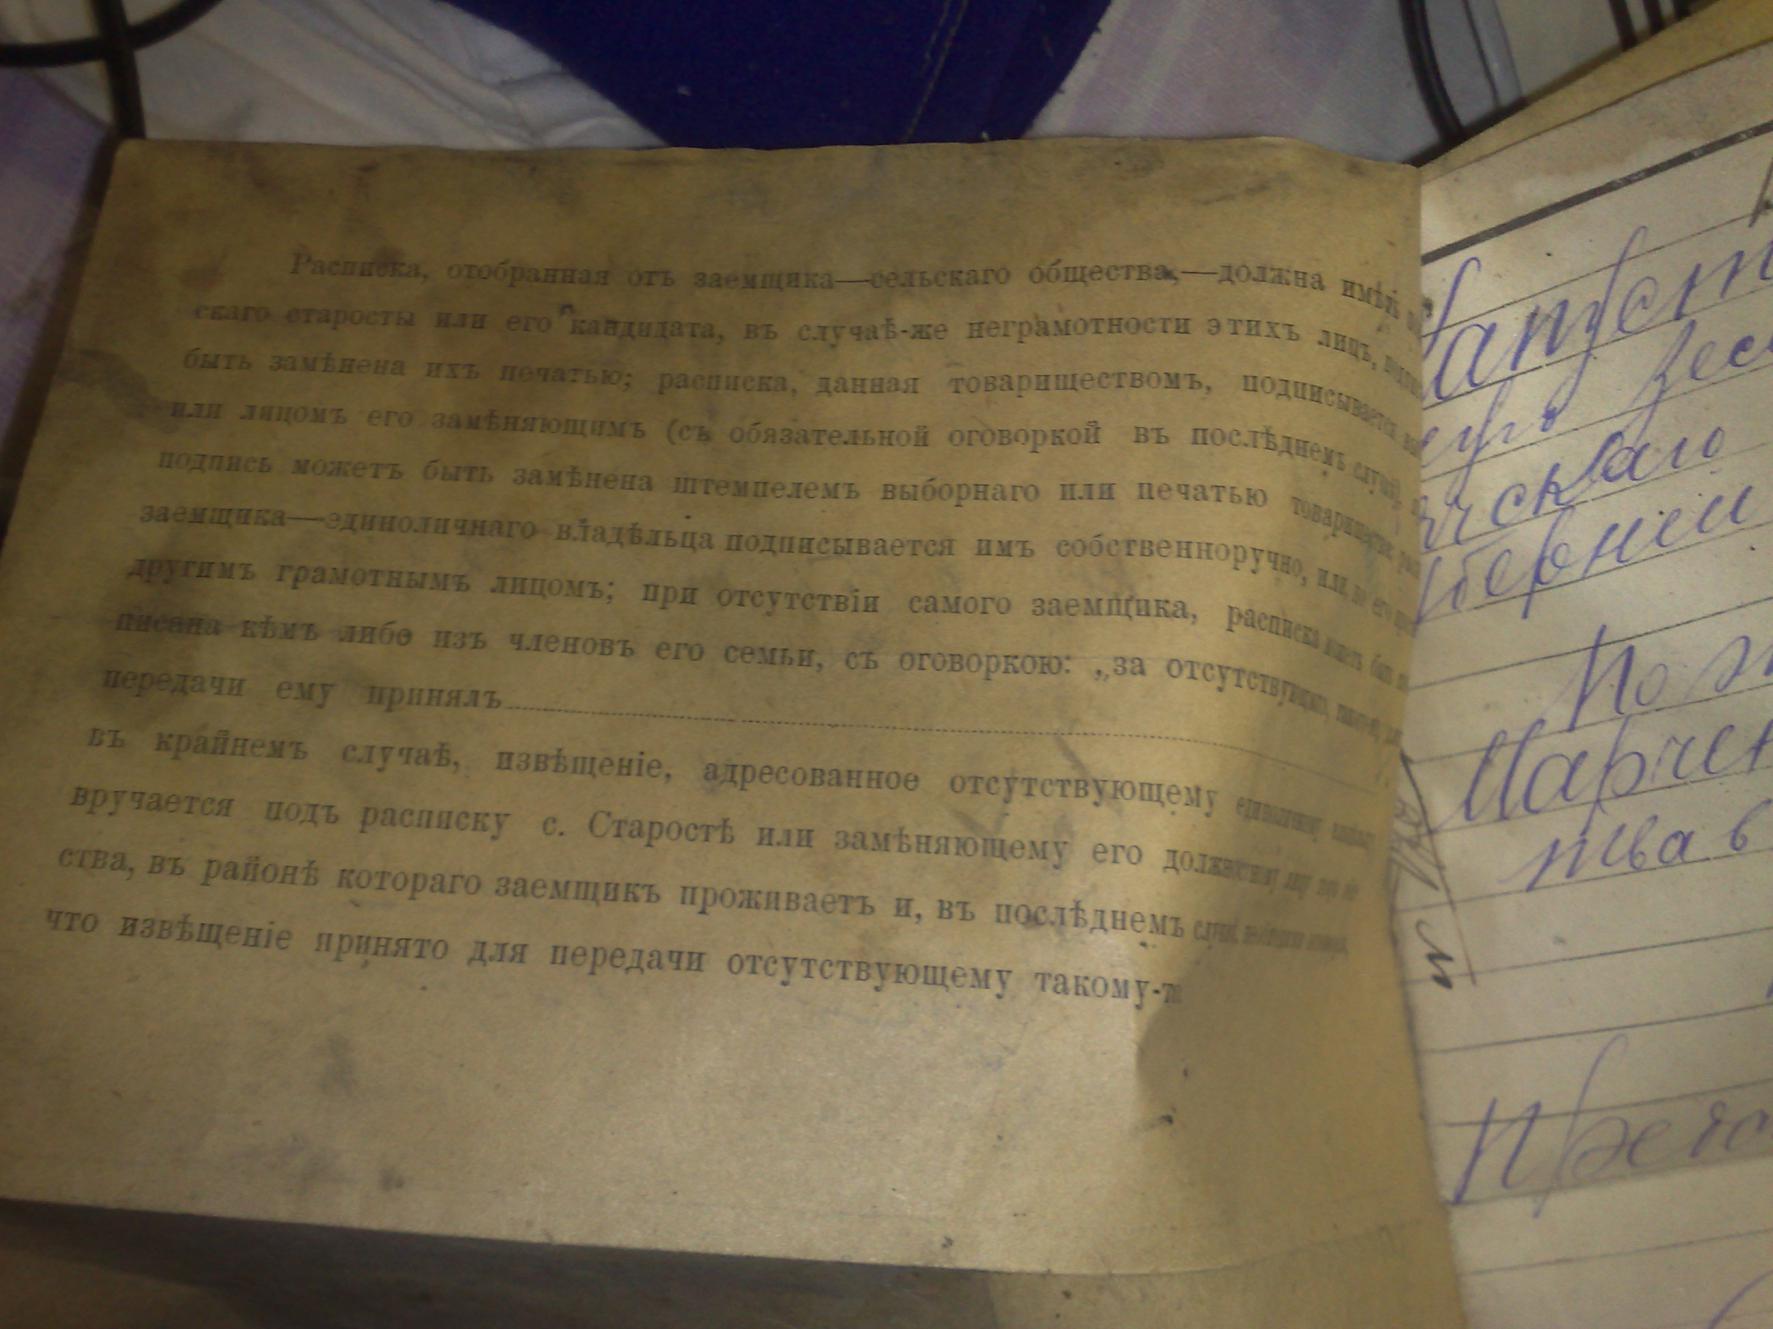 Расписка, отобранная отъ заемщика—сельскаго общества,—должна имѣть
скаго старосты или его кандидата, въ случаѣ-же неграмотности этихъ лицъ,
быть замѣнена ихъ печатью; расписка, данная товариществомъ, подписывается
или лицомъ его замѣняющимъ (съ обязательной оговоркой въ послѣднемъ случаѣ),
подпись можетъ быть замѣнена штемпелемъ выборнаго или печатью товарищества;
заемщика—единоличнаго владѣльца подписывается имъ собственноручно, или, по его
другимъ грамотнымъ лицомъ; при отсутствіи самого заемщика, расписка можетъ быть
писана кѣмъ либо изъ членовъ его семьи, съ оговоркою: „за отсутствующаго, для
передачи ему принялъ
въ крайнемъ случаѣ, извѣщеніе, адресованное отсутствующему единоличному
вручается подъ расписку с. Старостѣ или замѣняющему его должностному лицу
ства, въ районѣ котораго заемщикъ проживаетъ и, въ послѣднемъ случаѣ,
что извѣщеніе принято для передачи отсутствующему такому-т
Капуст
скаго
губерніи
Марчен
тва в